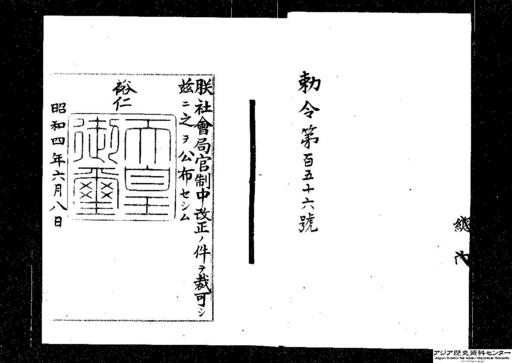 勅令第百五十六號
朕社會局官制中改正ノ件ヲ裁可シ
茲ニ之ヲ公布セシム
裕仁
天皇
御璽
昭和四年六月八日
總
内
アジア歴史資料センター
Japan Center for Asian Historical Records